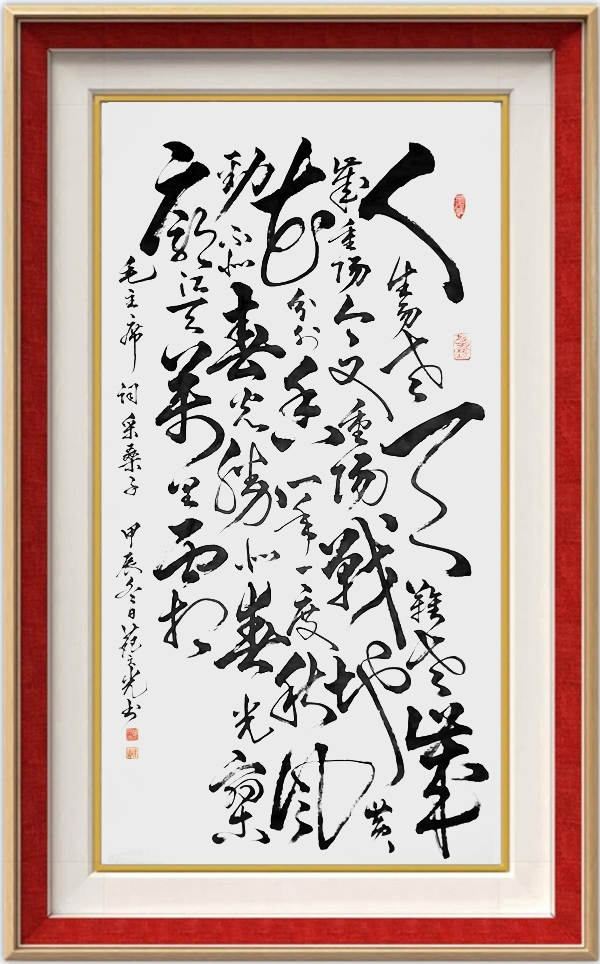 人生易老天難老歲
歲重陽今又重陽戰地黄
花分外香一年一度秋風
勁不似春光勝似春光寥
廓江天萬里霜
毛主席词采桑子 甲辰冬日范光书